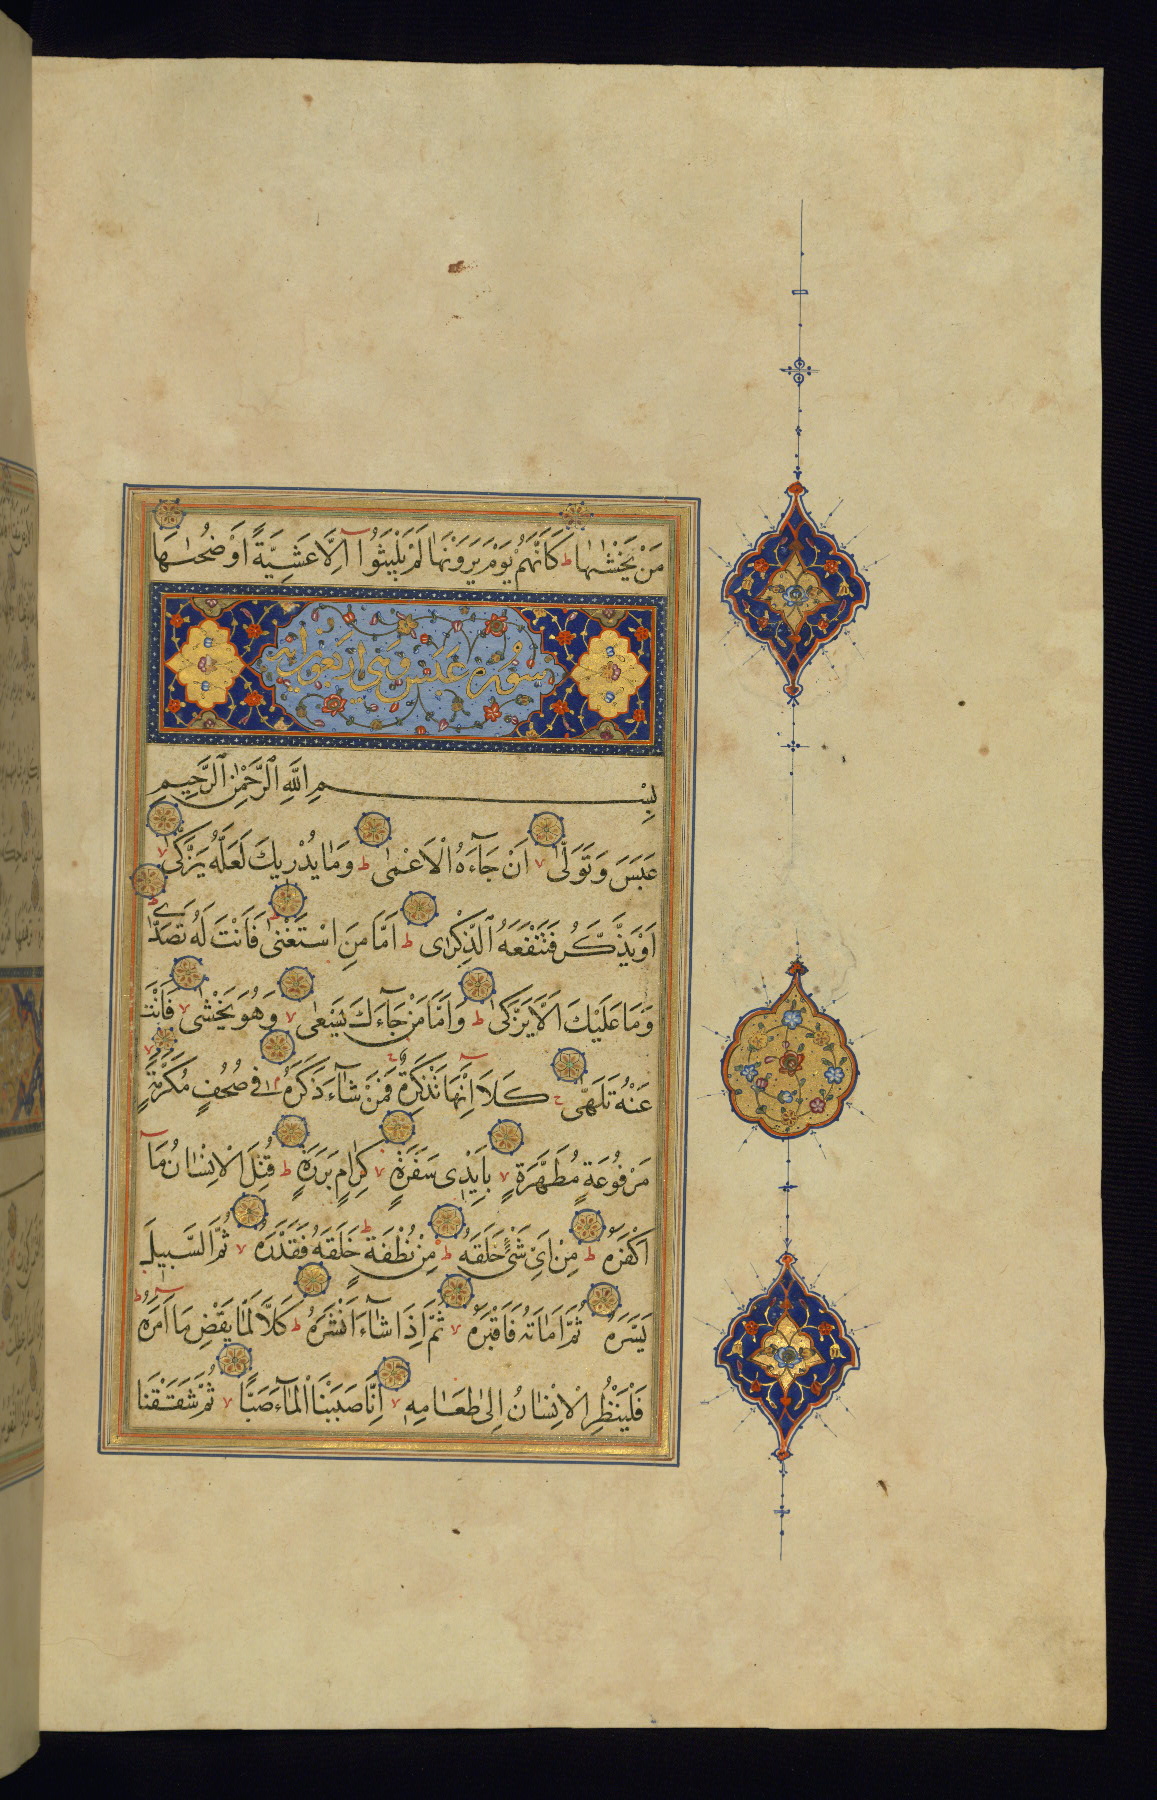 مَنْ يَخْشٰىهَا ط كَاَنَّهُمْ يَوْمَ يَرَوْنَهَا لَمْ يَلْبَثُٓوا اِلَّا عَشِيَّةً اَوْ ضُحٰىهَا
سورة عبس وهي اربعون اية
بِسْمِ اللَّهِ الرَّحْمٰنِ الرَّحِيمِ
عَبَسَ وَتَوَلّٰى ٧ اَنْ جَآءَهُ الْاَعْمٰى ط وَمَا يُدْرِيكَ لَعَلَّهُ يَزَّكّٰى ٧
اَوْ يَذَّكَّرُ فَتَنْفَعَهُ الذِّكْرٰى ط اَمَّا مَنِ اسْتَغْنٰى ط فَاَنْتَ لَهُ تَصَدّٰى ط
وَمَا عَلَيْكَ اَلَّا يَزَّكّٰى ط وَاَمَّا مَنْ جَآءَكَ يَسْعٰى ٧ وَهُوَ يَخْشٰى ٧ فَاَنْتَ
عَنْهُ تَلَهّٰى ج كَلَّٓا اِنَّهَا تَذْكِرَةٌ ج فَمَنْ شَآءَ ذَكَرَهُ م فِي صُحُفٍ مُكَرَّمَةٍ ٧
مَرْفُوعَةٍ مُطَهَّرَةٍ ٧ بِاَيْدِي سَفَرَةٍ ٧ كِرَامٍ بَرَرَةٍ ط قُتِلَ الْاِنْسَانُ مَآ
اَكْفَرَهُ ط مِنْ اَيِّ شَيْءٍ خَلَقَهُ ط مِنْ نُطْفَةٍ ط خَلَقَهُ فَقَدَّرَهُ ٧ ثُمَّ السَّبِيلَ
يَسَّرَهُ ثُمَّ اَمَاتَهُ فَاَقْبَرَهُ ٧ ثُمَّ اِذَا شَآءَ اَنْشَرَهُ ط كَلَّا لَمَّا يَقْضِ مَٓا اَمَرَهُ ط
فَلْيَنْظُرِ الْاِنْسَانُ اِلٰى طَعَامِهِ ٧ اَنَّا صَبَبْنَا الْمَآءَ صَبًّا ٧ ثُمَّ شَقَقْنَا